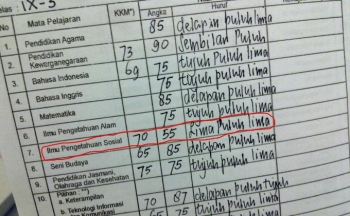 elas : IX-3
Mata Pelajaran KKM*) Angka Huruf
1. Pendidikan Agama 85 delapan puluh lima
2. Pendidikan Kewarganegaraan 73 90 Sembilan Puluh
3. Bahasa Indonesia 69 75 tujuh puluh lima
4. Bahasa Inggris 75 tujuh puluh lima
5. Matematika 85 delapan puluh lima
6. Ilmu Pengetahuan Alam 75 tujuh puluh lima
7. Ilmu Pengetahuan Sosial 70 55 Lima Puluh lima
8. Seni Budaya 65 85 delapan puluh lima
9. Pendidikan Jasmani, Olahraga dan Kesehatan 75 75 tujuh puluh lima
10. Pilihan
a. Keterampilan 70 87 delapan puluh tujuh
b. Teknologi Informasi